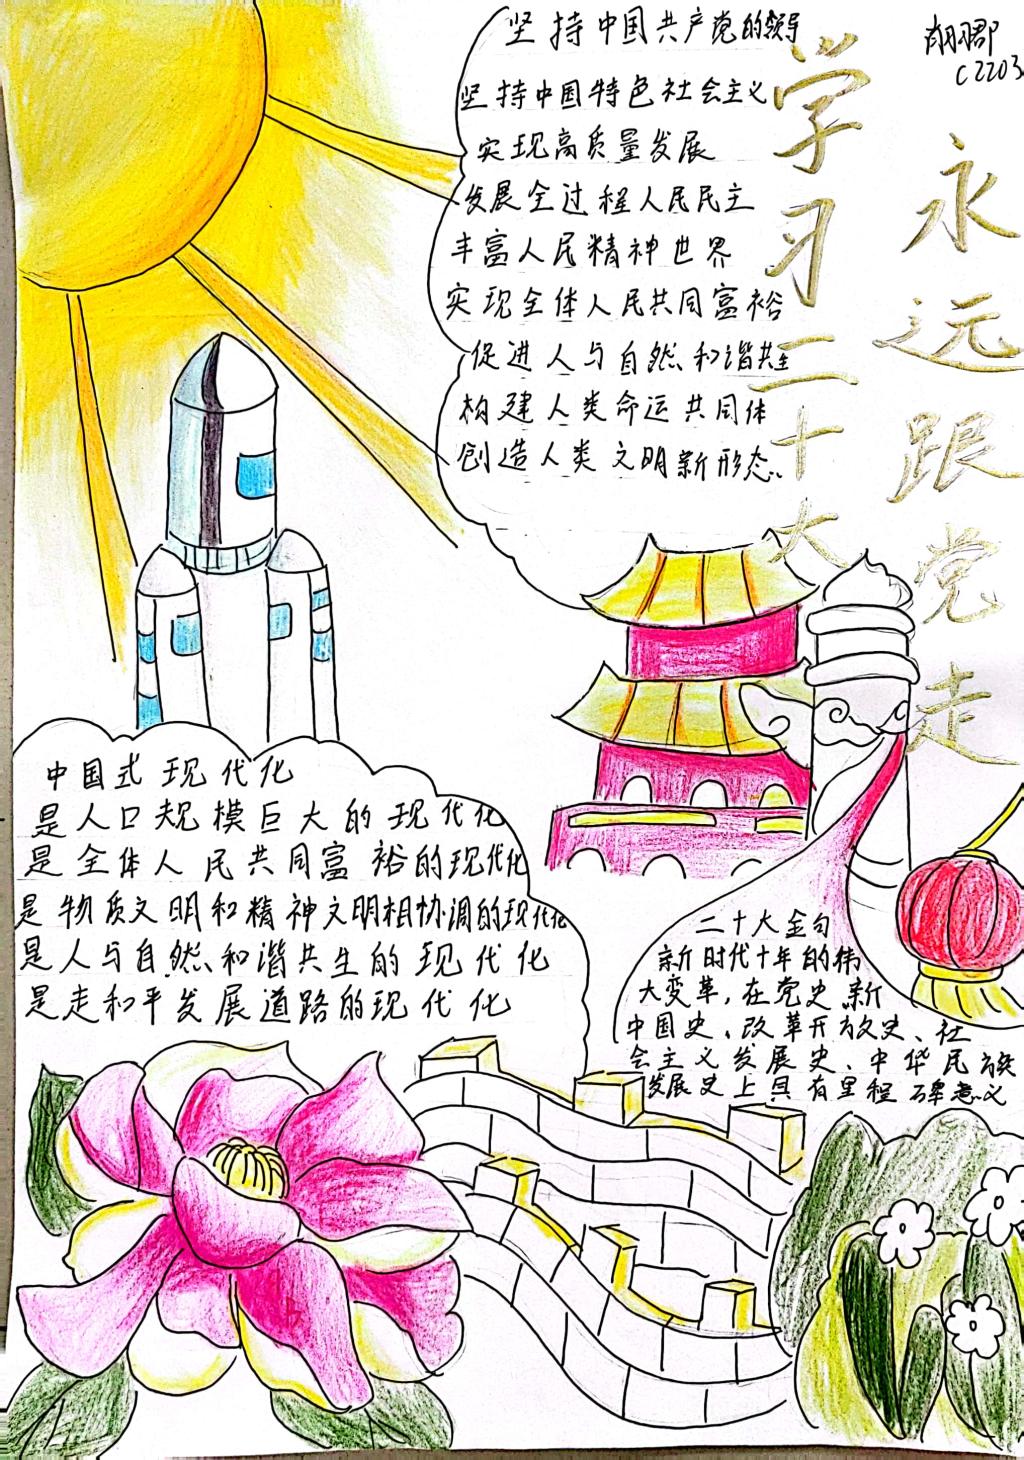 学习二十大
永远跟党走
C2203
坚持中国共产党的领导
坚持中国特色社会主义
实现高质量发展
发展全过程人民民主
丰富人民精神世界
实现全体人民共同富裕
促进人与自然和谐共生
构建人类命运共同体
创造人类文明新形态。
中国式现代化
是人口规模巨大的现代化
是全体人民共同富裕的现代化
是物质文明和精神文明相协调的现代化
是人与自然和谐共生的现代化
是走和平发展道路的现代化
二十大金句
新时代十年的伟
大变革，在党史、新
中国史、改革开放史、社
会主义发展史、中华民族
发展史上具有里程碑意义